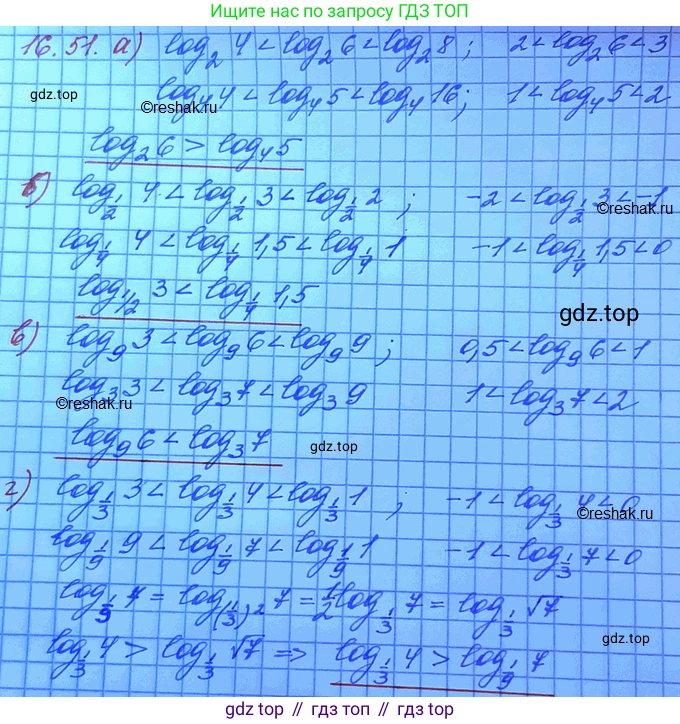 Ищете нас по запросу? ГДЗ ТОП
16.51. а) log₂ 4 < log₂ 6 < log₂ 8 ; 2 < log₂ 6 < 3
gdz.top log₄ 4 < log₄ 5 < log₄ 16 ; 1 < log₄ 5 < 2
©reshak.ru
log₂ 6 > log₄ 5
б) log_{1/2} 4 < log_{1/2} 3 < log_{1/2} 2 ; -2 < log_{1/2} 3 < -1
©reshak.ru
log_{1/4} 4 < log_{1/4} 1,5 < log_{1/4} 1 -1 < log_{1/4} 1,5 < 0
log_{1/2} 3 < log_{1/4} 1,5
gdz.top
в) log₉ 3 < log₉ 6 < log₉ 9 ; 0,5 < log₉ 6 < 1
log₃ 3 < log₃ 7 < log₃ 9 1 < log₃ 7 < 2
©reshak.ru
log₉ 6 < log₃ 7 gdz.top
г) log_{1/3} 3 < log_{1/3} 4 < log_{1/3} 1 ; -1 < log_{1/3} 4 < 0
©reshak.ru
log_{1/9} 9 < log_{1/9} 7 < log_{1/9} 1 -1 < log_{1/3} 7 < 0
log_{1/9} 7 = log_{(1/3)²} 7 = 1/2 log_{1/3} 7 = log_{1/3} √7
log_{1/3} 4 > log_{1/3} √7 => log_{1/3} 4 > log_{1/9} 7
gdz.top
©reshak.ru
gdz.top // гдз топ // gdz.top